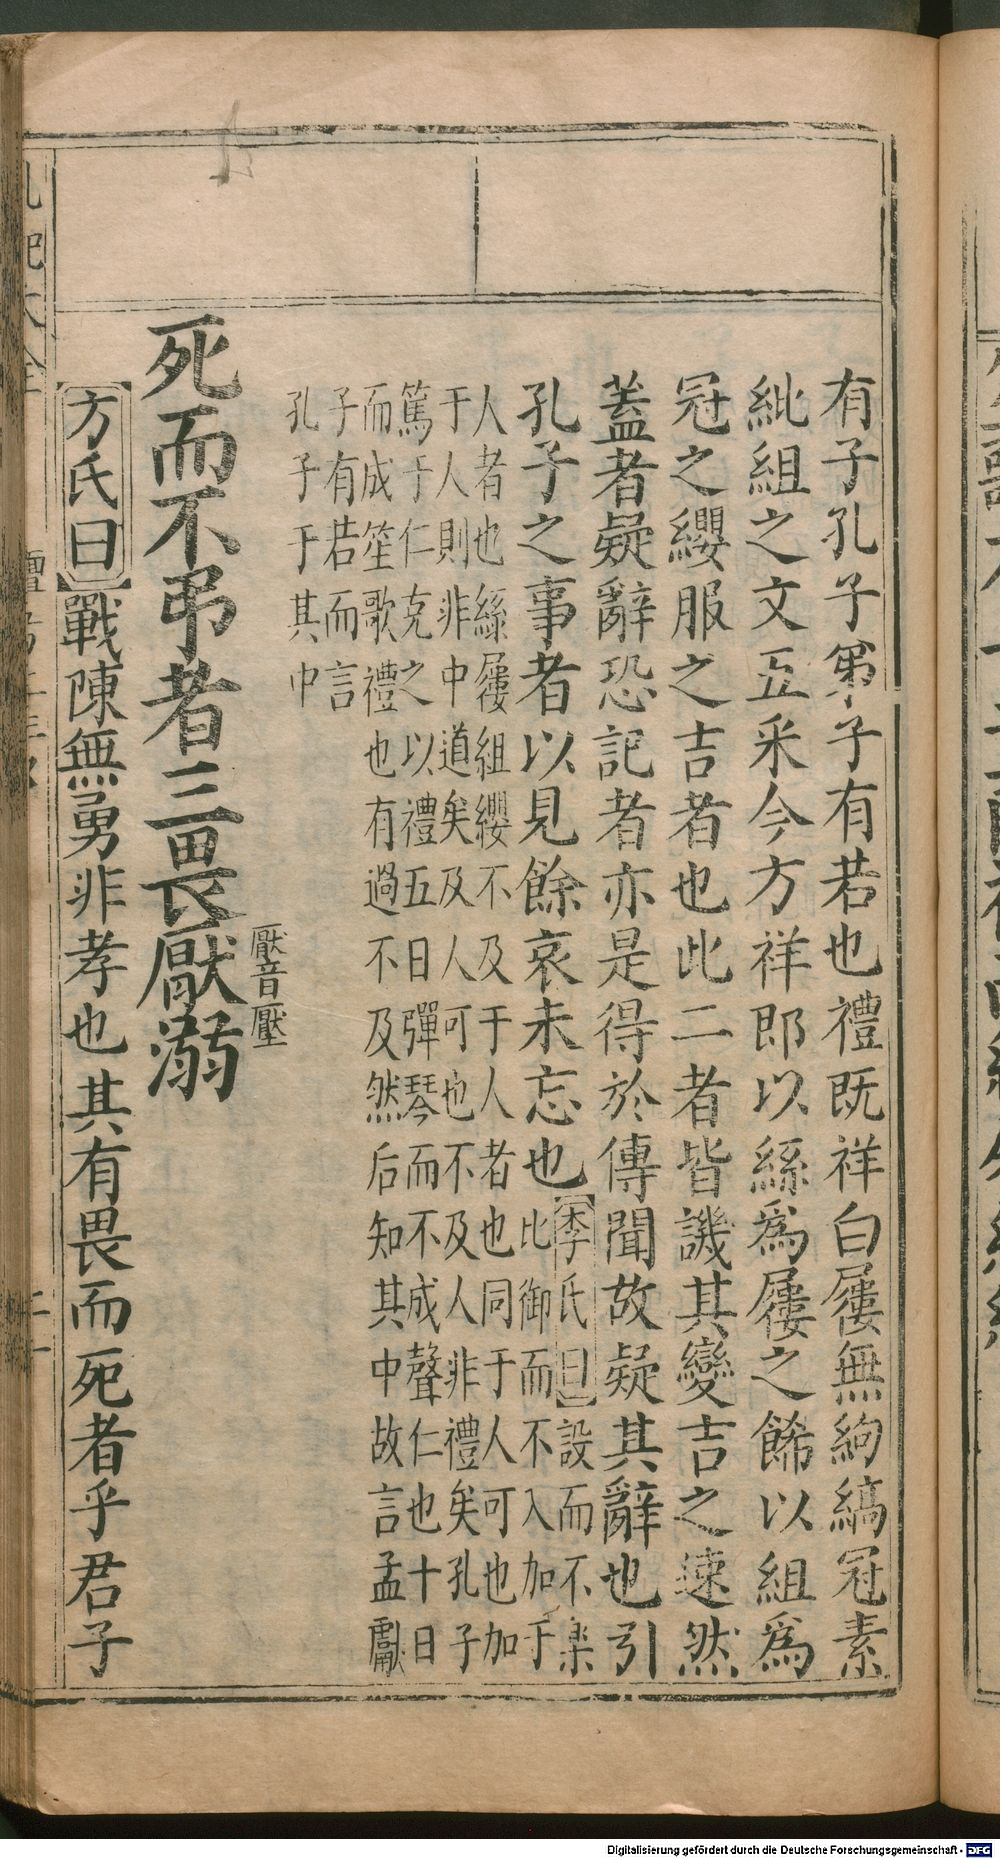 有子孔子第子有若也禮既祥白屨無絇縞冠素
紕組之文五采今方祥即以絲爲屨之餙以組爲
冠之纓服之吉者也此二者皆譏其變吉之速然
蓋者疑辭恐記者亦是得於傳聞故疑其辭也引
孔子之事者以見餘哀未忘也
李氏曰設而不樂
比御而不入加于
人者也絲屨組纓不及于人者也同于人可也加
于人則非中道矣及人可也不及人非禮矣孔子
篤于仁克之以禮五日彈琴而不成聲仁也十日
而成笙歌禮也有過不及然后知其中故言孟獻
子有若而言
孔子于其中
厭音壓
死而不弔者三畏厭溺
方氏曰戰陳無勇非孝也其有畏而死者乎君子
Digitalisierung gefördert durch die Deutsche Forschungsgemeinschaft - DFG